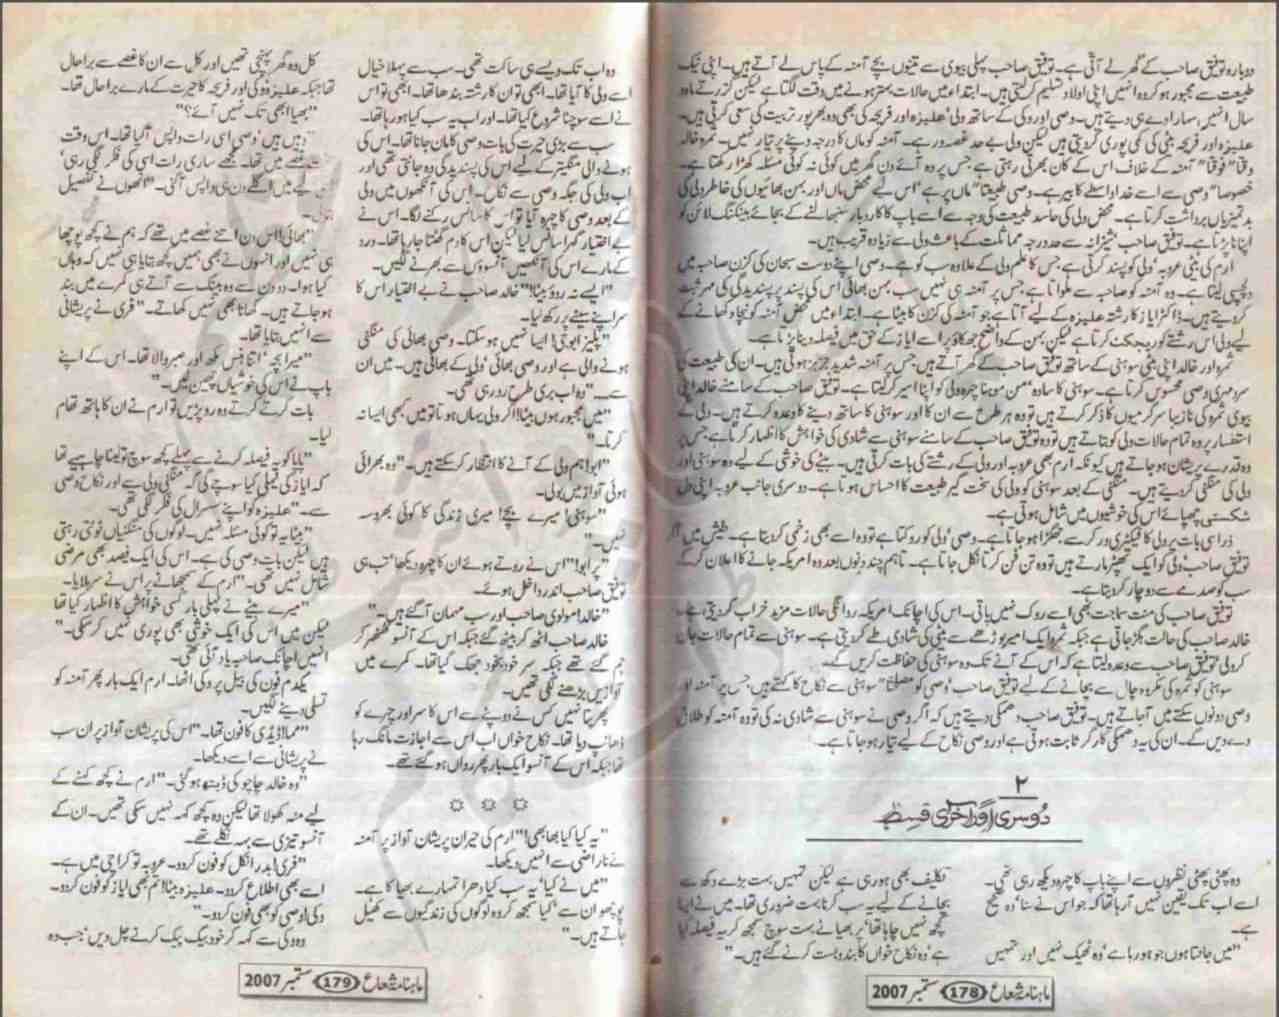 دوبارہ توفیق صاحب کے گھر لے آتی ہے۔ توفیق صاحب پہلی بیوی سے تینوں بچے آمنہ کے پاس لے آتے ہیں۔ اپنی نیک
طبیعت سے مجبور ہو کر وہ انہیں اپنی اولاد تسلیم کرلیتی ہیں۔ ابتداء میں حالات بہتر ہونے میں وقت لگتا ہے لیکن گزرتے ماہ
سال انہیں سہارا دے ہی دیتے ہیں۔ وصی اور وکی کے ساتھ ولی، علیزہ اور فریحہ کی بھی وہ بھرپور تربیت کی سعی کرتی ہیں۔
علیزہ اور فریحہ بیٹی کی کمی پوری کردیتی ہیں لیکن ولی بے حد غصہ ور ہے۔ آمنہ کو ماں کا درجہ دینے پر تیار نہیں۔ ثمرہ خالد
وقتاً فوقتاً آمنہ کے خلاف اس کے کان بھرتی رہتی ہے جس پر وہ آئے دن گھر میں کوئی نہ کوئی مسئلہ کھڑا رکھتا ہے۔
خصوصاً وصی سے اسے خدا واسطے کا بیر ہے۔ وصی طبیعتاً ماں پر ہے، اس لیے محض ماں اور بہن بھائیوں کی خاطر ولی کی
بدتمیزیاں برداشت کرتا ہے۔ محض ولی کی حاسد طبیعت کی وجہ سے اسے باپ کا کاروبار سنبھالنے کے بجائے بینکنگ لائن کو
اپنانا پڑتا ہے۔ توفیق صاحب شیزانہ سے حد درجہ مماثلت کے باعث ولی سے زیادہ قریب ہیں۔
ارم کی بیٹی عروبہ، ولی کو پسند کرتی ہے جس کا علم ولی کے علاوہ سب کو ہے۔ وصی اپنے دوست سبحان کی کزن صاحبہ میں
دلچسپی لیتا ہے۔ وہ آمنہ کو صاحبہ سے ملواتا ہے جس پر آمنہ ہی نہیں سب بہن بھائی اس کی پسند پر پسندیدگی کی مہر ثبت
کردیتے ہیں۔ ڈاکٹر ایاز کا رشتہ علیزہ کے لیے آتا ہے جو آمنہ کی کزن کا بیٹا ہے۔ ابتداء میں محض آمنہ کو نیچا دکھانے کے
لیے ولی اس رشتے کو ریجیکٹ کرتا ہے لیکن بہن کے واضح جھکاؤ پر اسے ایاز کے حق میں فیصلہ دینا پڑتا ہے۔
ثمرہ اور خالد اپنی بیٹی سوہنی کے ساتھ توفیق صاحب کے گھر آتے ہیں، جس پر آمنہ شدید جزبز ہوتی ہیں۔ ان کی طبیعت کی
سرد مہری وصی محسوس کرتا ہے۔ سوہنی کا سادہ، من موہنا چہرہ ولی کو اپنا اسیر کرلیتا ہے۔ توفیق صاحب کے سامنے خالد اپنی
بیوی ثمرہ کی نازیبا سرگرمیوں کا ذکر کرتے ہیں تو وہ ہر طرح سے ان کا اور سوہنی کا ساتھ دینے کا وعدہ کرتے ہیں۔ ولی کے
استفسار پر وہ تمام حالات ولی کو بتاتے ہیں تو وہ توفیق صاحب کے سامنے سوہنی سے شادی کی خواہش کا اظہار کرتا ہے، جس پر
وہ قدرے پریشان ہوجاتے ہیں کیونکہ ارم بھی عروبہ اور ولی کے رشتے کی بات کرتی ہیں۔ بیٹے کی خوشی کے لیے وہ سوہنی اور
ولی کی منگنی کردیتے ہیں۔ منگنی کے بعد سوہنی کو ولی کی سخت گیر طبیعت کا احساس ہوتا ہے۔ دوسری جانب عروبہ اپنی دل
شکستی چھپائے اس کی خوشیوں میں شامل ہوتی ہے۔
ذرا سی بات پر ولی کا فیکٹری ورکر سے جھگڑا ہوجاتا ہے۔ وصی، ولی کو روکتا ہے تو وہ اسے بھی زخمی کردیتا ہے۔ طیش میں آکر
توفیق صاحب ولی کو ایک تھپڑ مارتے ہیں تو وہ تن فن کرتا نکل جاتا ہے۔ تاہم چند دنوں بعد وہ امریکہ جانے کا اعلان کرکے
سب کو صدمے سے دوچار کردیتا ہے۔
توفیق صاحب کی منت سماجت بھی اسے روک نہیں پاتی۔ اس کی اچانک امریکہ روانگی حالات مزید خراب کردیتی ہے۔
خالد صاحب کی حالت بگڑ جاتی ہے جبکہ ثمرہ ایک امیر بوڑھے سے بیٹی کی شادی طے کردیتی ہے۔ سوہنی سے تمام حالات جان
کر ولی توفیق صاحب سے وعدہ لیتا ہے کہ اس کے آنے تک وہ سوہنی کی حفاظت کریں گے۔
سوہنی کو ثمرہ کی مکروہ چال سے بچانے کے لیے توفیق صاحب، وصی کو مصلحتاً سوہنی سے نکاح کا کہتے ہیں، جس پر آمنہ اور
وصی دونوں سکتے میں آجاتے ہیں۔ توفیق صاحب دھمکی دیتے ہیں کہ اگر وصی نے سوہنی سے شادی نہ کی تو وہ آمنہ کو طلاق
دے دیں گے۔ ان کی یہ دھمکی کارگر ثابت ہوتی ہے اور وصی نکاح کے لیے تیار ہوجاتا ہے۔
۲
دوسری اور آخری قسط
وہ پھٹی پھٹی نظروں سے اپنے باپ کا چہرہ دیکھ رہی تھی۔
اسے اب تک یقین نہیں آرہا تھا کہ جو اس نے سنا، وہ سچ
ہے۔
"میں جانتا ہوں جو ہورہا ہے، وہ ٹھیک نہیں اور تمہیں
تکلیف بھی ہورہی ہے لیکن تمہیں بہت بڑے دکھ سے
بچانے کے لیے یہ سب کرنا بہت ضروری تھا۔ میں نے ایسا
کچھ نہیں چاہا تھا، پر بھیا نے بہت سوچ سمجھ کر یہ فیصلہ کیا
ہے، وہ نکاح خواں کا بندوبست کرنے گئے ہیں۔"
ماہنامہ شعاع 178 ستمبر 2007
وہ اب تک ویسے ہی ساکت تھی۔ سب سے پہلا خیال
اسے ولی کا آیا تھا۔ ابھی تو ان کا رشتہ بندھا تھا۔ ابھی تو اس
نے اسے سوچنا شروع کیا تھا۔ اور اب یہ سب کیا ہورہا تھا۔
سب سے بڑی حیرت کی بات وصی کا مان جانا تھا۔ اس کی
ہونے والی منگیتر کے لیے اس کی پسندیدگی وہ جانتی تھی اور
اب ولی کی جگہ وصی سے نکاح۔ اس کی آنکھوں میں ولی
کے بعد وصی کا چہرہ آیا تو اس کا سانس رکنے لگا۔ اس نے
بے اختیار گہرا سانس لیا لیکن اس کا دم گھٹتا جارہا تھا۔ درد
کے مارے اس کی آنکھیں آنسوؤں سے بھرنے لگیں۔
"ایسے نہ روؤ بیٹا!" خالد صاحب نے بے اختیار اس کا
سر اپنے سینے پر رکھ لیا۔
"پلیز ابو جی! ایسا نہیں ہوسکتا۔ وصی بھائی کی منگنی
ہونے والی ہے اور وصی بھائی، ولی کے بھائی ہیں۔ میں ان
سے۔" وہ اب بری طرح رو رہی تھی۔
"میں مجبور ہوں بیٹا! اگر ولی یہاں ہوتا تو میں کبھی ایسا نہ
کرتا۔"
"ابو! ہم ولی کے آنے کا انتظار کرسکتے ہیں۔" وہ بھرائی
ہوئی آواز میں بولی۔
"سوہنی! میرے بچے! میری زندگی کا کوئی بھروسہ
نہیں۔"
"پر ابو!" اس نے روتے ہوئے ان کا چہرہ دیکھا، تب ہی
توفیق صاحب اندر داخل ہوئے۔
"خالد! مولوی صاحب اور سب مہمان آگئے ہیں۔"
خالد صاحب اٹھ کر بیٹھ گئے جبکہ اس کے آنسو ٹھٹھر کر
جم گئے تھے جبکہ سر خود بخود جھک گیا تھا۔ کمرے میں
آوازیں بڑھنے لگی تھیں۔
پھر پتا نہیں کس نے دوپٹے سے اس کا سر اور چہرے کو
ڈھانپ دیا تھا۔ نکاح خواں اب اس سے اجازت مانگ رہا
تھا جبکہ اس کے آنسو ایک بار پھر رواں ہوگئے تھے۔
☼ ☼ ☼
"یہ کیا کیا بھابھی!" ارم کی حیران پریشان آواز پر آمنہ
نے ناراضی سے انہیں دیکھا۔
"میں نے کیا، یہ سب کیا دھرا تمہارے بھیا کا ہے۔
پوچھو ان سے، کیا سمجھ کر وہ لوگوں کی زندگیوں سے کھیل
جاتے ہیں۔"
کل وہ گھر پہنچی تھیں اور کل سے ان کا غصے سے برا حال
تھا جبکہ علیزہ، وکی اور فریحہ کا حیرت کے مارے برا حال تھا۔
"بھیا ابھی تک نہیں آئے؟"
نہیں، وصی اسی رات واپس آگیا تھا۔ اس وقت
غصے میں تھا۔ مجھے ساری رات اسی کی فکر لگی رہی،
لیے میں اگلے دن ہی واپس آگئی۔" انہوں نے تفصیل
"بھائی! اس دن اتنے غصے میں تھے کہ ہم نے کچھ پوچھا
ہی نہیں اور انہوں نے بھی ہمیں کچھ بتایا ہی نہیں کہ وہاں
کیا ہوا۔ دو دن سے وہ بینک سے آتے ہی کمرے میں بند
ہوجاتے ہیں۔ کھانا بھی نہیں کھاتے۔" فری نے پریشانی
سے انہیں بتایا تھا۔
"میرا بچہ، اتنا ہنس مکھ اور صبر والا تھا۔ اس کے اپنے
باپ نے اس کی خوشیاں چھین لیں۔"
بات کرتے کرتے وہ رو پڑیں تو ارم نے ان کا ہاتھ تھام
لیا۔
"پاپا کو یہ فیصلہ کرنے سے پہلے کچھ سوچ تو لینا چاہیے تھا
کہ ایاز کی فیملی کیا سوچے گی کہ منگنی ولی سے اور نکاح وصی
سے۔" علیزہ کو اپنے سسرال کی فکر لگی تھی۔
"بیٹا یہ تو کوئی مسئلہ نہیں۔ لوگوں کی منگنیاں ٹوٹتی رہتی
ہیں لیکن بات وصی کی ہے۔ اس کی ایک فیصد بھی مرضی
شامل نہیں تھی۔" ارم کے سمجھانے پر اس نے سر ہلایا۔
"میرے بیٹے نے پہلی بار کسی خواہش کا اظہار کیا تھا
لیکن میں اس کی ایک خوشی بھی پوری نہیں کرسکی۔"
انہیں اچانک صاحبہ یاد آئی تھی۔
یکدم فون کی بیل پر وکی اٹھا۔ ارم ایک بار پھر آمنہ کو
تسلی دینے لگیں۔
"مما! ڈیڈی کا فون تھا۔" اس کی پریشان آواز پر ان سب
نے پریشانی سے اسے دیکھا۔
"وہ خالد چاچو کی ڈیتھ ہوگئی۔" ارم نے کچھ کہنے کے
لیے منہ کھولا تھا لیکن وہ کچھ کہہ نہیں سکی تھیں۔ ان کے
آنسو تیزی سے بہہ نکلے تھے۔
"فری! بدر انکل کو فون کردو۔ عروبہ تو کراچی میں ہے۔
اسے بھی اطلاع کردو۔ علیزہ بیٹا! تم بھی ایاز کو فون کردو۔
وکی! وصی کو بھی فون کردو۔"
وہ وکی سے کہہ کر خود بیگ پیک کرنے چل دیں، جب وہ
ماہنامہ شعاع 179 ستمبر 2007